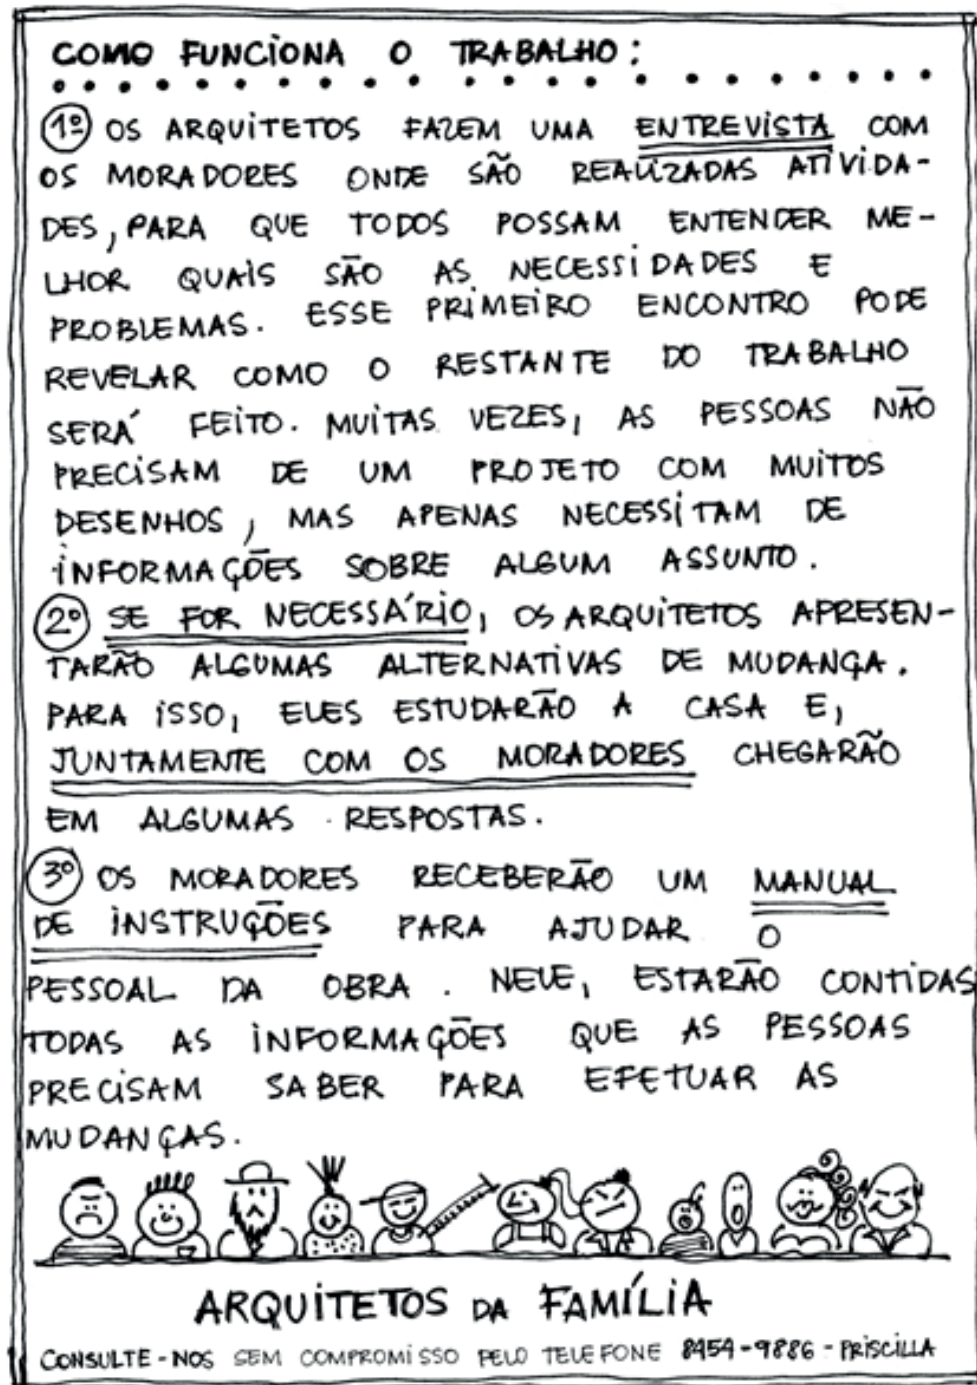 COMO FUNCIONA O TRABALHO:
1º OS ARQUITETOS FAZEM UMA ENTREVISTA COM
OS MORADORES ONDE SÃO REALIZADAS ATIVIDA-
DES, PARA QUE TODOS POSSAM ENTENDER ME-
LHOR QUAIS SÃO AS NECESSIDADES E
PROBLEMAS. ESSE PRIMEIRO ENCONTRO PODE
REVELAR COMO O RESTANTE DO TRABALHO
SERÁ FEITO. MUITAS VEZES, AS PESSOAS NÃO
PRECISAM DE UM PROJETO COM MUITOS
DESENHOS, MAS APENAS NECESSITAM DE
INFORMAÇÕES SOBRE ALGUM ASSUNTO.
2º SE FOR NECESSÁRIO, OS ARQUITETOS APRESEN-
TARÃO ALGUMAS ALTERNATIVAS DE MUDANÇA.
PARA ISSO, ELES ESTUDARÃO A CASA E,
JUNTAMENTE COM OS MORADORES CHEGARÃO
EM ALGUMAS RESPOSTAS.
3º OS MORADORES RECEBERÃO UM MANUAL
DE INSTRUÇÕES PARA AJUDAR O
PESSOAL DA OBRA. NELE, ESTARÃO CONTIDAS
TODAS AS INFORMAÇÕES QUE AS PESSOAS
PRECISAM SABER PARA EFETUAR AS
MUDANÇAS.
ARQUITETOS DA FAMÍLIA
CONSULTE-NOS SEM COMPROMISSO PELO TELEFONE 8454-9886 - PRISCILLA